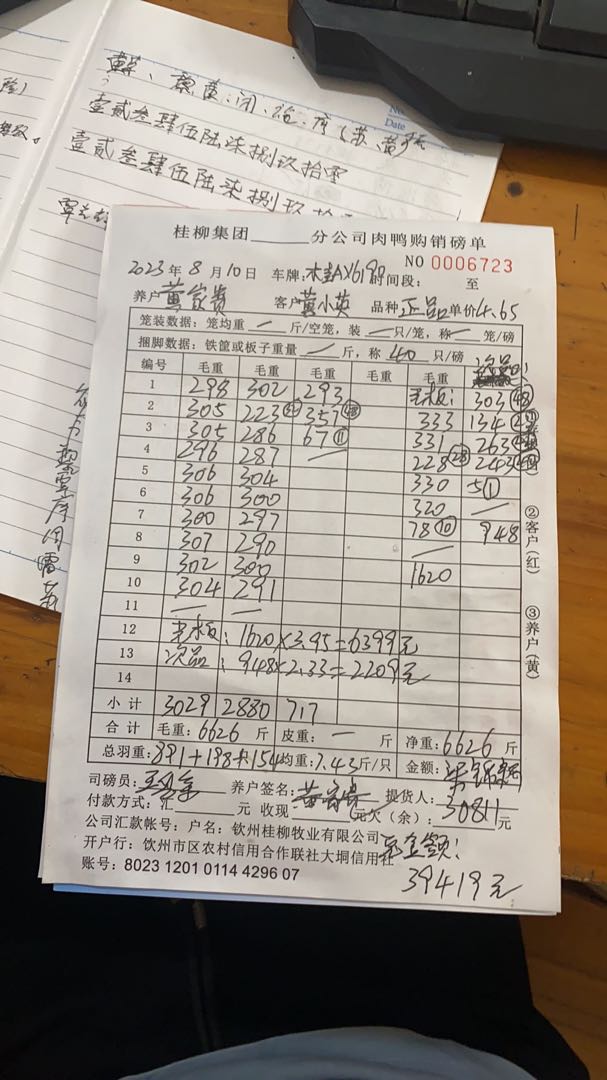 壹贰叁肆伍陆柒捌玖拾零
壹贰叁肆伍陆柒捌玖拾零
Date
桂柳集团______分公司肉鸭购销磅单
NO 0006723
2023年8月10日 车牌: 时间段: 至
养户 黄家贵 客户 黄小英 品种 正品 单价4.65
笼装数据:笼均重 — 斤/空笼,装 — 只/笼,称 — 笼/磅
捆脚数据:铁筐或板子重量 — 斤,称 40 只/磅 次品
编号 毛重 毛重 毛重 毛重 毛重
1 298 302 293 毛板: 303 48
2 305 223 357 48 333 134
3 305 286 67 11 331 263
4 296 287 — 228 28 243
5 306 304 330 5 1
6 306 300 320 —
7 300 297 78 10 948
8 307 290 —
9 302 300 1620
10 304 291
11 — —
12 毛板:1620×3.95=6399元
13 次品:948×2.33=2209元
14
小计 3029 2880 717
合计 毛重:6626斤 皮重:—斤 净重:6626斤
总羽重:891+198+154 均重:7.43斤/只 金额:
司磅员: 养户签名: 提货人:
付款方式:汇______元 收现______元欠(余):30811元
公司汇款帐号:户名:钦州桂柳牧业有限公司
开户行:钦州市区农村信用合作联社大垌信用社
总金额:
账号:8023 1201 0114 4296 07
39419元
②客户(红)
③养户(黄)